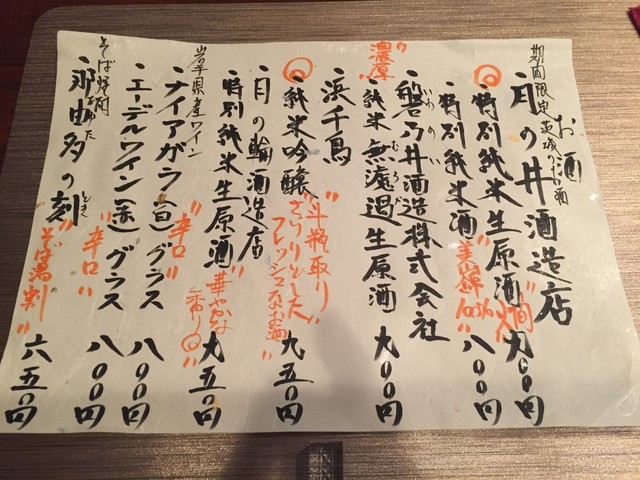 お酒
期間限定 茨城のお酒
・月の井酒造店
◎特別純米生原酒 "人肌燗" 九〇〇円
特別純米酒 "美山錦100%" 八〇〇円
・磐乃井酒造株式会社
いわのい
"濃厚"
・純米無濾過生原酒 九〇〇円
むろか
・浜千鳥
◎純米吟醸 "斗瓶取り" 九五〇円
"さらりとしたフレッシュなお酒"
・月の輪酒造店
・特別純米生原酒 "華やかな香り◎" 九五〇円
岩手県産ワイン
・ナイアガラ(白)グラス "辛口" 八〇〇円
・エーデルワイン(赤)グラス "辛口" 八〇〇円
そば焼酎
・那由多の刻 "そば湯割" 六五〇円
なゆた とき